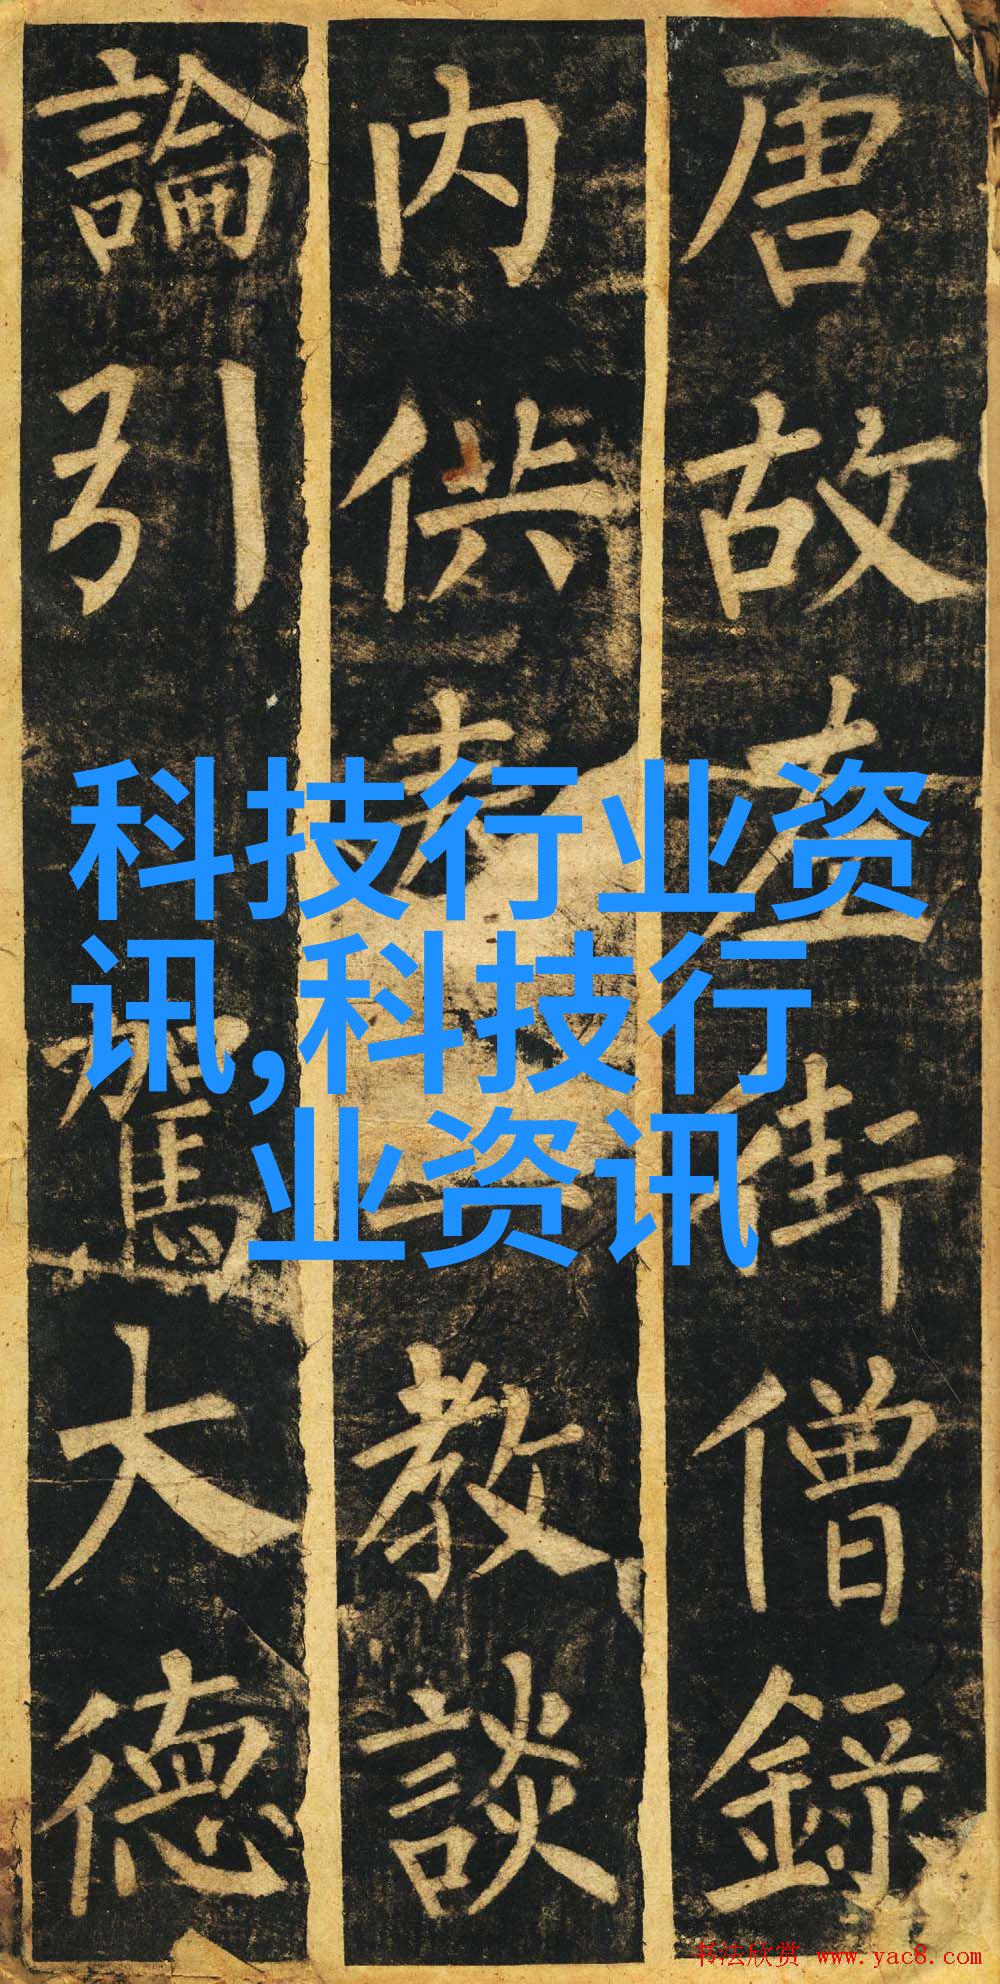 唐故左街僧錄
内供奉三教談
論引駕大德
科技行业资
讯,科技行
业资讯
书法欣赏 www.yac8.com